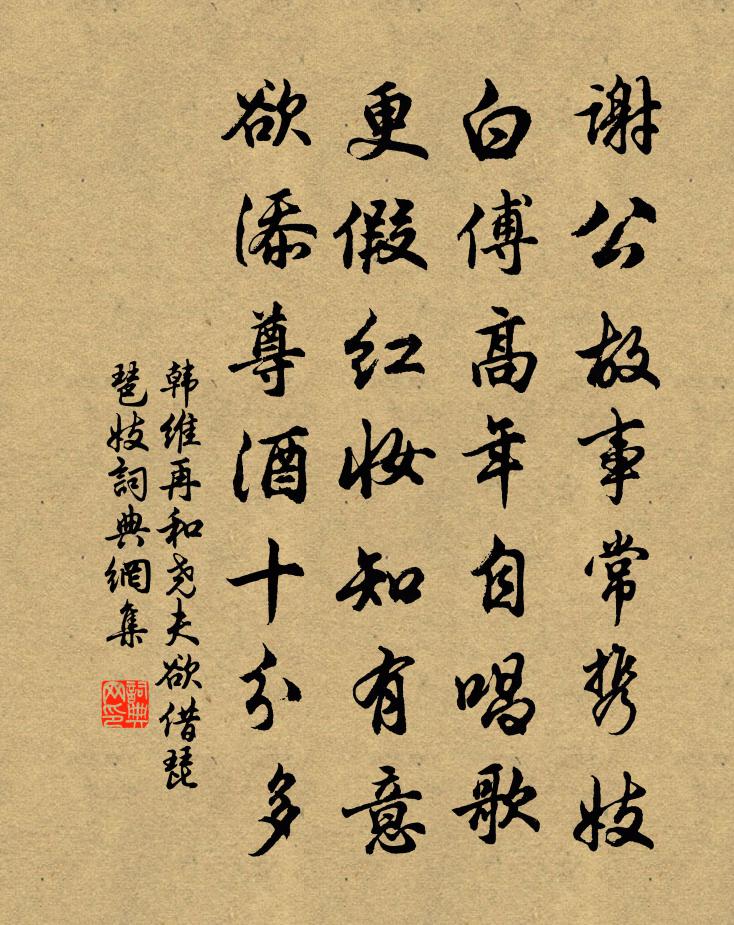 谢公故事常携妓
白傅高年自唱歌
更假红妆知有意
欲添尊酒十分多
韩维再和尧夫欲借琵
琶妓詞典網集
詞典网印